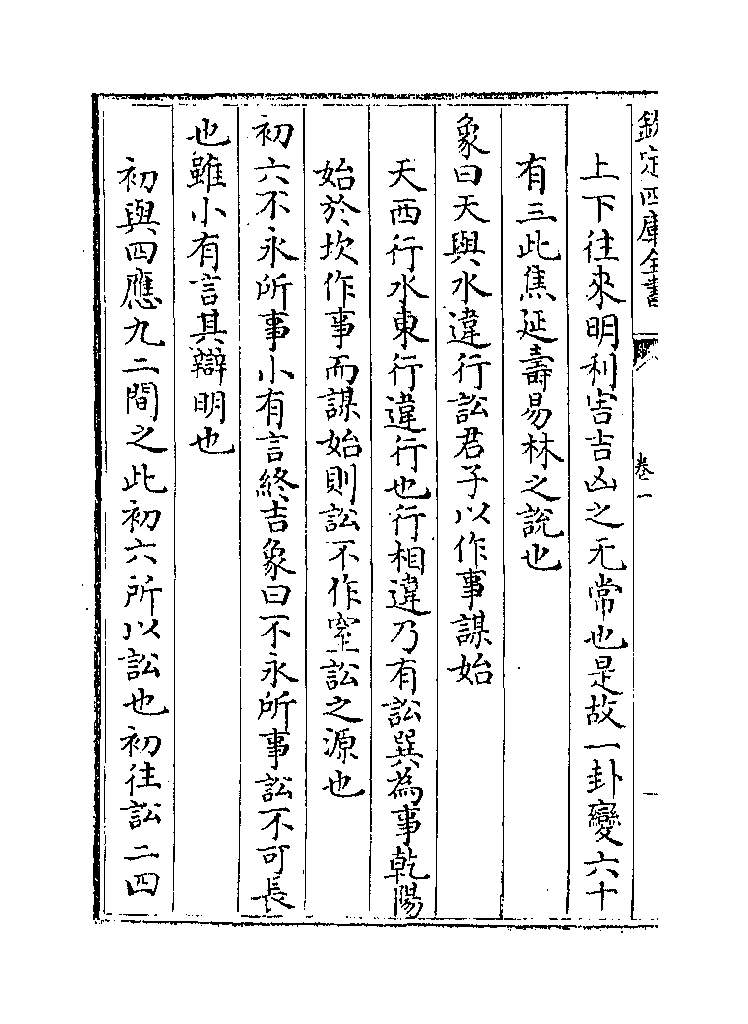 欽定四庫全書
卷一
上下往來明利害吉凶之无常也是故一卦變六十
有三此焦延壽易林之說也
象曰天與水違行訟君子以作事謀始
天西行水東行違行也行相違乃有訟巽為事乾陽
始於坎作事而謀始則訟不作窒訟之源也
初六不永所事小有言終吉象曰不永所事訟不可長
也雖小有言其辯明也
初與四應九二間之此初六所以訟也初往訟二四